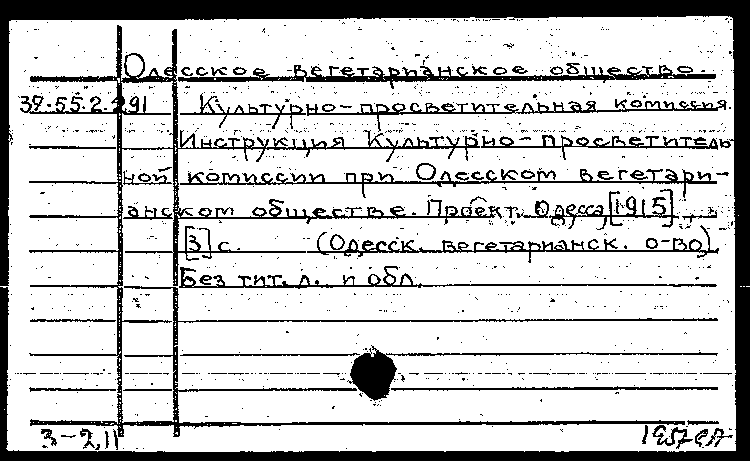 Одесское вегетарианское общество.
37.55.2.291 Культурно-просветительная комиссия.
Инструкция Культурно-просветитель
ной комиссии при Одесском вегетари-
анском обществе. Проект. Одесса, [1915],
[3] с. (Одесск. вегетарианск. о-во).
Без тит. л. и обл.
3-2,11